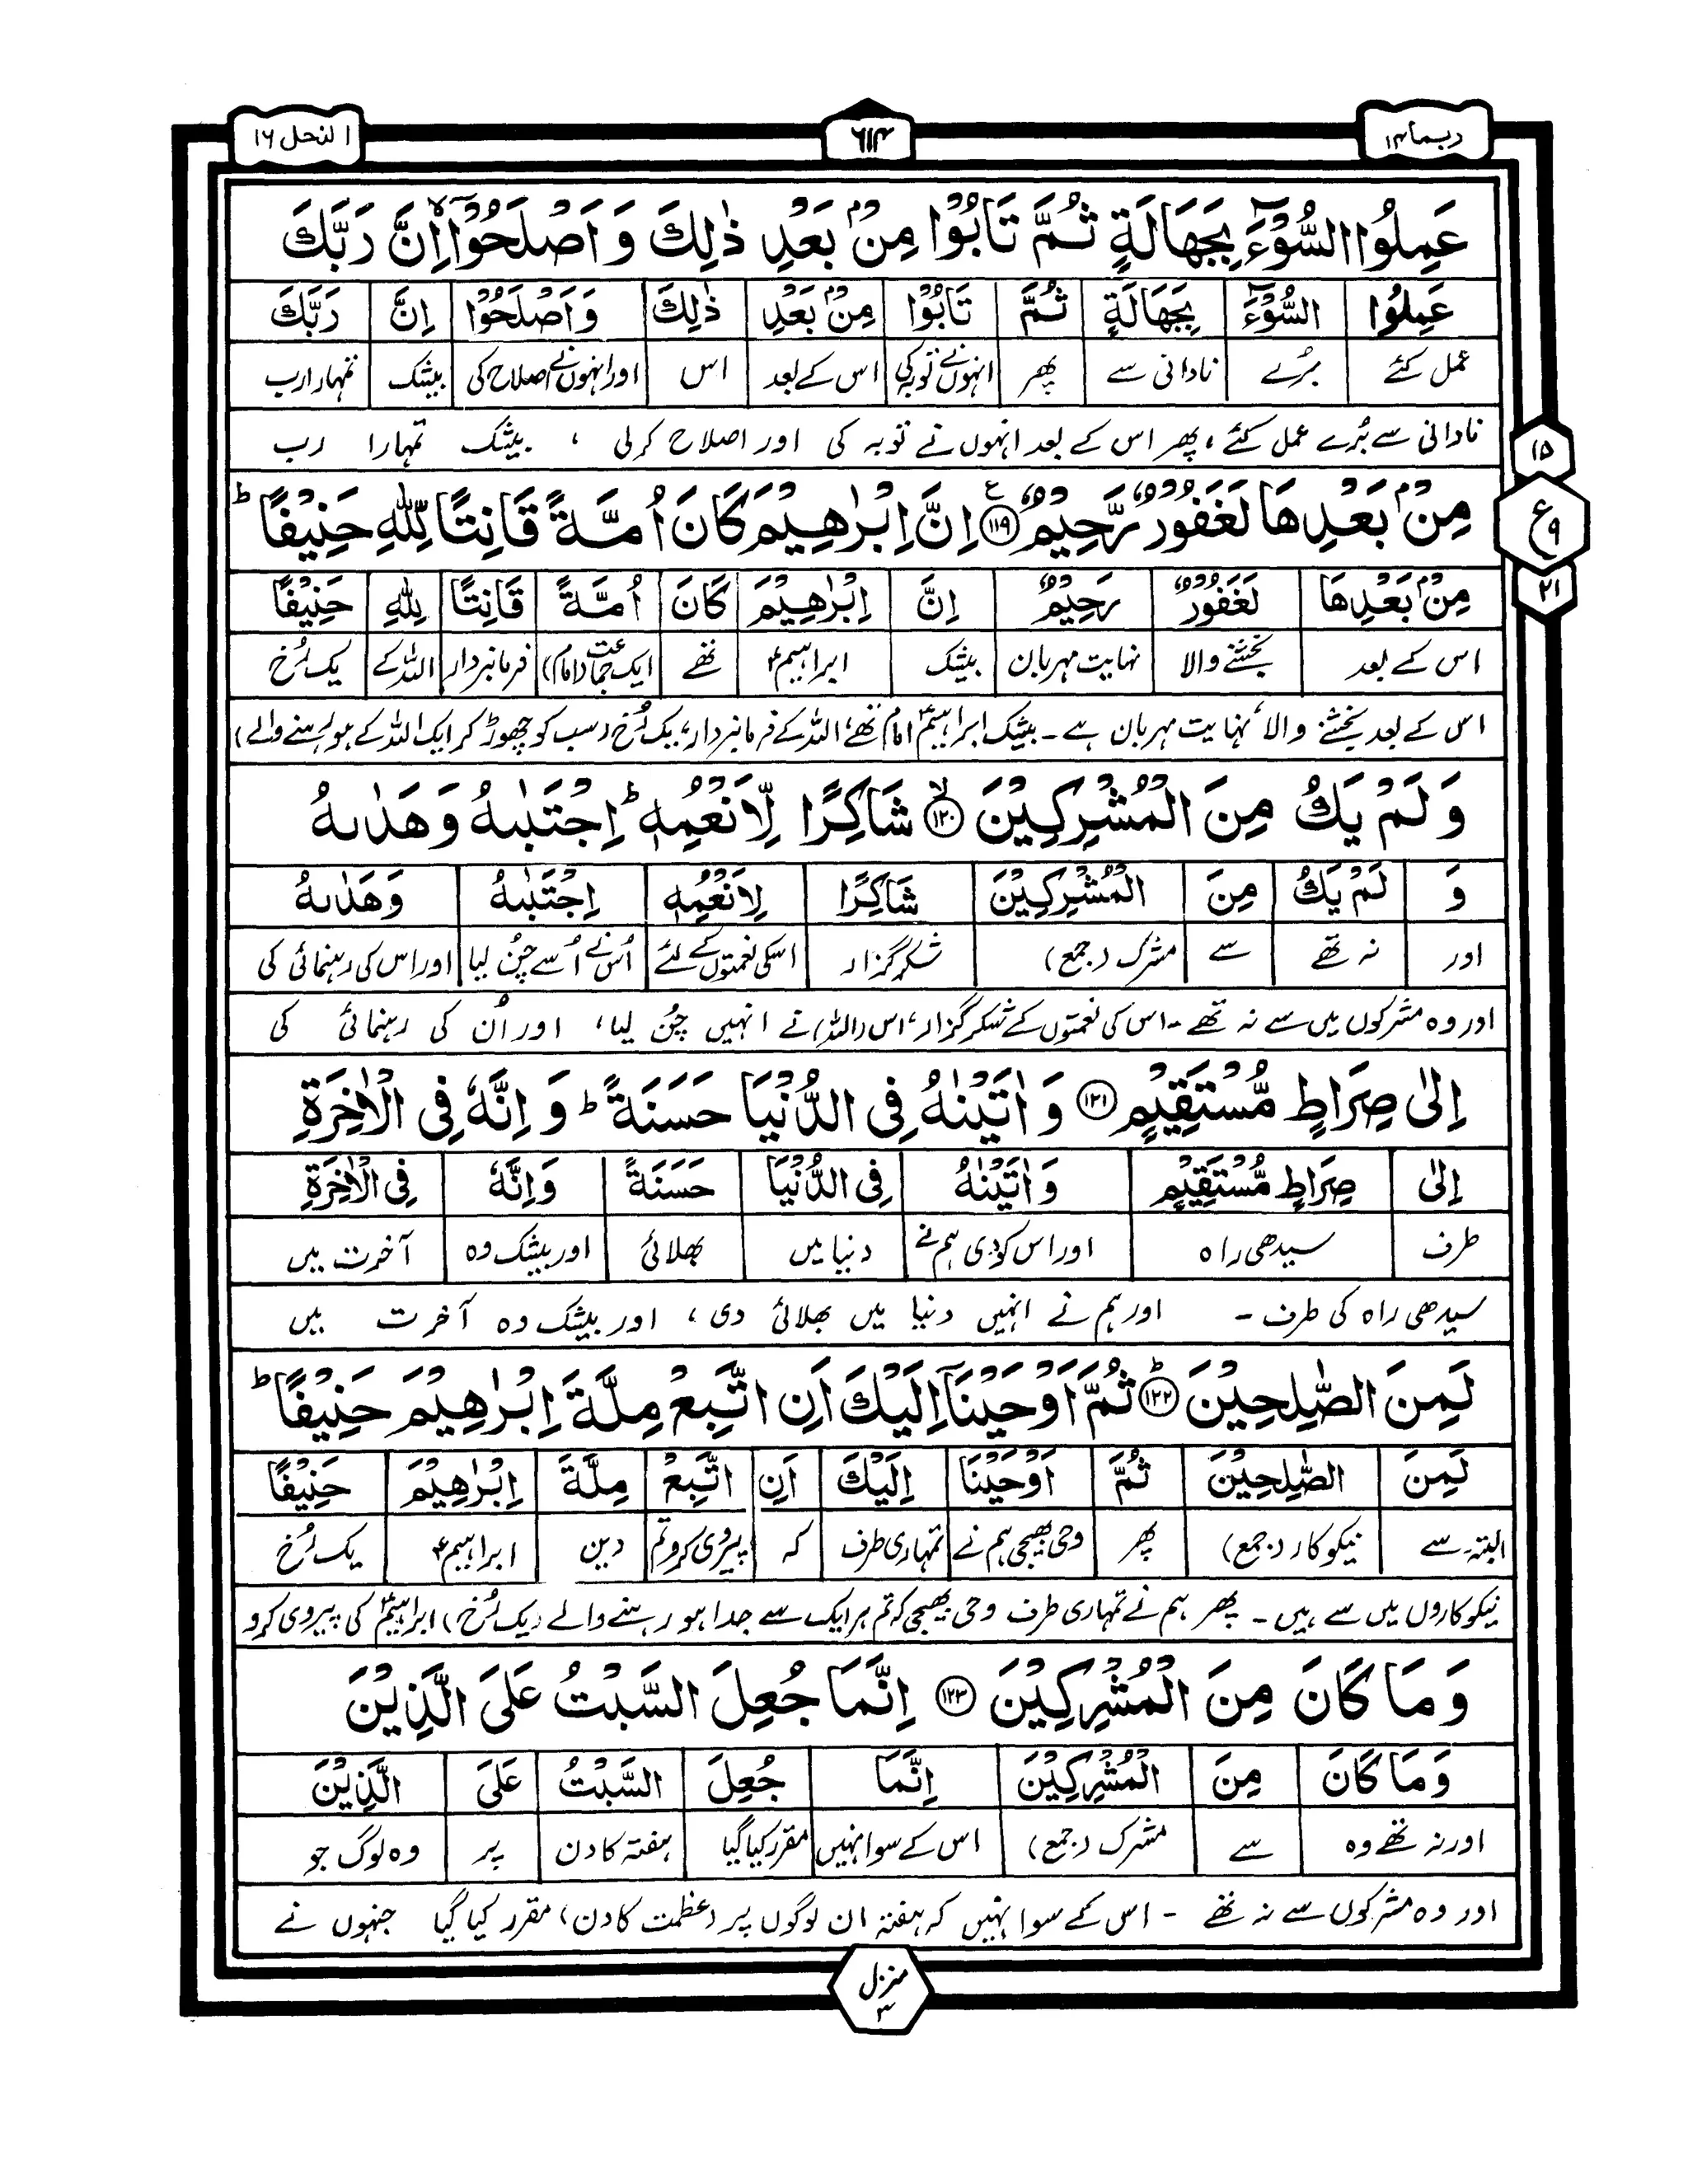 ربما ۱۴
۶۱۴
النحل ۱۶
عَمِلُوا السُّوْٓءَ بِجَهَالَةٍ ثُمَّ تَابُوْا مِنْۢ بَعْدِ ذٰلِكَ وَ اَصْلَحُوْۤا ۙ اِنَّ رَبَّكَ
عَمِلُوا السُّوْٓءَ بِجَهَالَةٍ ثُمَّ تَابُوْا مِنْۢ بَعْدِ ذٰلِكَ وَاَصْلَحُوْا اِنَّ رَبَّكَ
عمل کئے بُرے نادانی سے پھر انہوں نے توبہ کی اس کے بعد اس اور انہوں نے اصلاح کی بیشک تمہارا رب
نادانی سے بُرے عمل کئے ، پھر اس کے بعد انہوں نے توبہ کی اور اصلاح کرلی ، بیشک تمہارا رب
۱۵
مِنْۢ بَعْدِهَا لَغَفُوْرٌ رَّحِيْمٌ ۝۱۱۹ ع اِنَّ اِبْرٰهِيْمَ كَانَ اُمَّةً قَانِتًا لِّلّٰهِ حَنِيْفًا ؕ
ع ۹
۲۱
مِنْۢ بَعْدِهَا لَغَفُوْرٌ رَحِيْمٌ اِنَّ اِبْرٰهِيْمَ كَانَ اُمَّةً قَانِتًا لِلّٰهِ حَنِيْفًا
اس کے بعد بخشنے والا نہایت مہربان بیشک ابراہیمؑ تھے ایک جماعت (امام) فرمانبردار اللہ کے یک رُخ
اس کے بعد بخشنے والا، نہایت مہربان ہے ۔ بیشک ابراہیمؑ امام تھے، اللہ کے فرمانبردار، یک رُخ (سب کو چھوڑ کر ایک اللہ کے ہو رہنے والے)
وَ لَمْ يَكُ مِنَ الْمُشْرِكِيْنَ ۝۱۲۰ ۙ شَاكِرًا لِّاَنْعُمِهٖ ؕ اِجْتَبٰىهُ وَ هَدٰىهُ
وَ لَمْ يَكُ مِنَ الْمُشْرِكِيْنَ شَاكِرًا لِاَنْعُمِهٖ اِجْتَبٰىهُ وَهَدٰىهُ
اور نہ تھے سے مشرک (جمع) شکر گزار اسکی نعمتوں کے لئے اُس نے اُسے چُن لیا اور اس کی رہنمائی کی
اور وہ مشرکوں میں سے نہ تھے ۔ اس کی نعمتوں کے شکر گزار، اس (اللہ) نے انہیں چُن لیا، اور اُن کی رہنمائی کی
اِلٰى صِرَاطٍ مُّسْتَقِيْمٍ ۝۱۲۱ وَ اٰتَيْنٰهُ فِى الدُّنْيَا حَسَنَةً ؕ وَ اِنَّهٗ فِى الْاٰخِرَةِ
اِلٰى صِرَاطٍ مُّسْتَقِيْمٍ وَاٰتَيْنٰهُ فِى الدُّنْيَا حَسَنَةً وَاِنَّهٗ فِى الْاٰخِرَةِ
طرف سیدھی راہ اور اس کو دی ہم نے دنیا میں بھلائی اور بیشک وہ آخرت میں
سیدھی راہ کی طرف ۔ اور ہم نے انہیں دنیا میں بھلائی دی ، اور بیشک وہ آخرت میں
لَمِنَ الصّٰلِحِيْنَ ۝۱۲۲ ؕ ثُمَّ اَوْحَيْنَاۤ اِلَيْكَ اَنِ اتَّبِعْ مِلَّةَ اِبْرٰهِيْمَ حَنِيْفًا ؕ
لَمِنَ الصّٰلِحِيْنَ ثُمَّ اَوْحَيْنَا اِلَيْكَ اَنِ اتَّبِعْ مِلَّةَ اِبْرٰهِيْمَ حَنِيْفًا
البتہ سے نیکوکار (جمع) پھر وحی بھیجی ہم نے تمہاری طرف کہ پیروی کرو تم دین ابراہیمؑ یک رُخ
نیکوکاروں میں سے ہیں ۔ پھر ہم نے تمہاری طرف وحی بھیجی کہ تم ہر ایک سے جدا ہو رہنے والے (یک رُخ) ابراہیمؑ کی پیروی کرو
وَ مَا كَانَ مِنَ الْمُشْرِكِيْنَ ۝۱۲۳ اِنَّمَا جُعِلَ السَّبْتُ عَلَى الَّذِيْنَ
وَمَا كَانَ مِنَ الْمُشْرِكِيْنَ اِنَّمَا جُعِلَ السَّبْتُ عَلَى الَّذِيْنَ
اور نہ تھے وہ سے مشرک (جمع) اس کے سوا نہیں مقرر کیا گیا ہفتہ کا دن پر وہ لوگ جو
اور وہ مشرکوں سے نہ تھے ۔ اس کے سوا نہیں کہ ہفتہ ان لوگوں پر (عظمت کا دن) مقرر کیا گیا جنہوں نے
منزل ۳